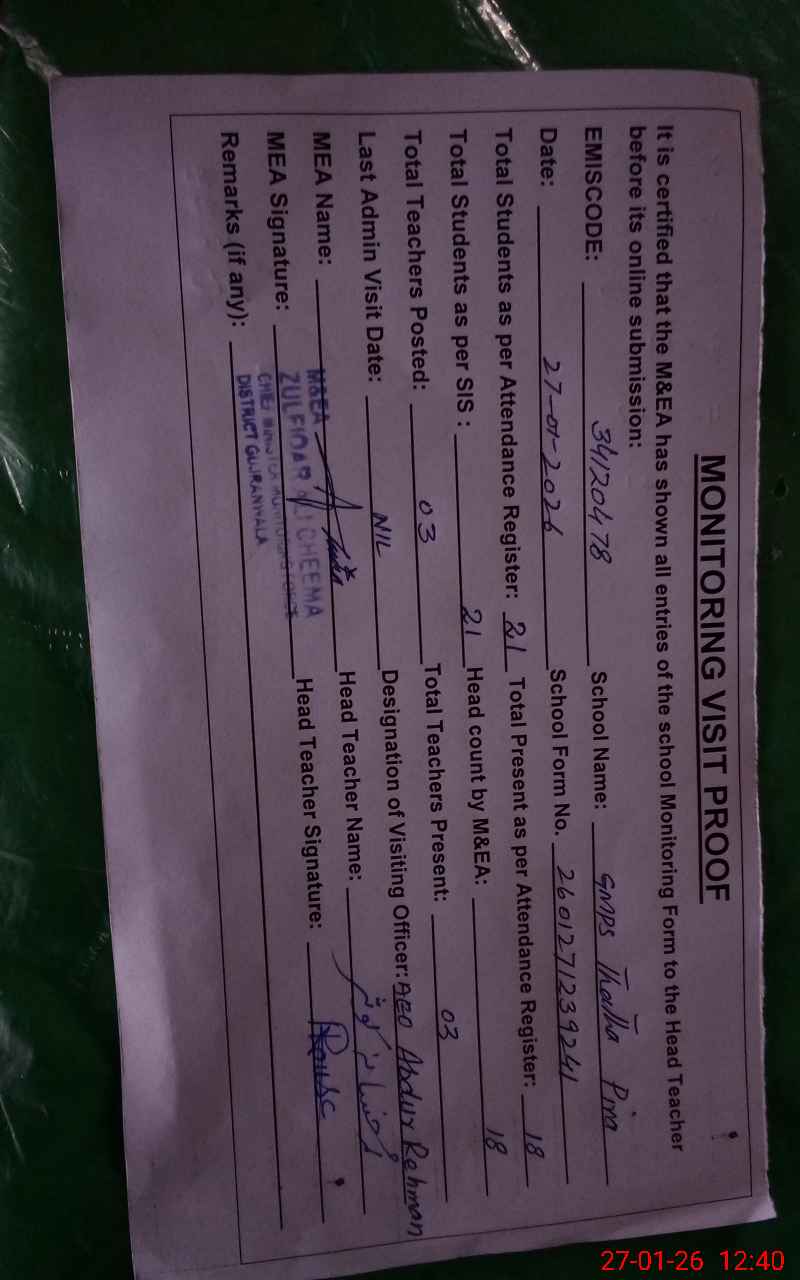 MONITORING VISIT PROOF
It is certified that the M&EA has shown all entries of the school Monitoring Form to the Head Teacher
before its online submission:
EMISCODE: 34120478 School Name: GMPS Thatha Pira
Date: 27-01-2026 School Form No. 2601271239241
Total Students as per Attendance Register: 21 Total Present as per Attendance Register: 18
Total Students as per SIS : 21 Head count by M&EA: 18
Total Teachers Posted: 03 Total Teachers Present: 03
Last Admin Visit Date: NIL Designation of Visiting Officer: AEO Abdur Rehman
MEA Name: Head Teacher Name:
MEA Signature: Head Teacher Signature:
Remarks (if any):
M&EA
ZULFIQAR ALI CHEEMA
CHIEF MINISTER MONITORING FORCE
DISTRICT GUJRANWALA
27-01-26 12:40